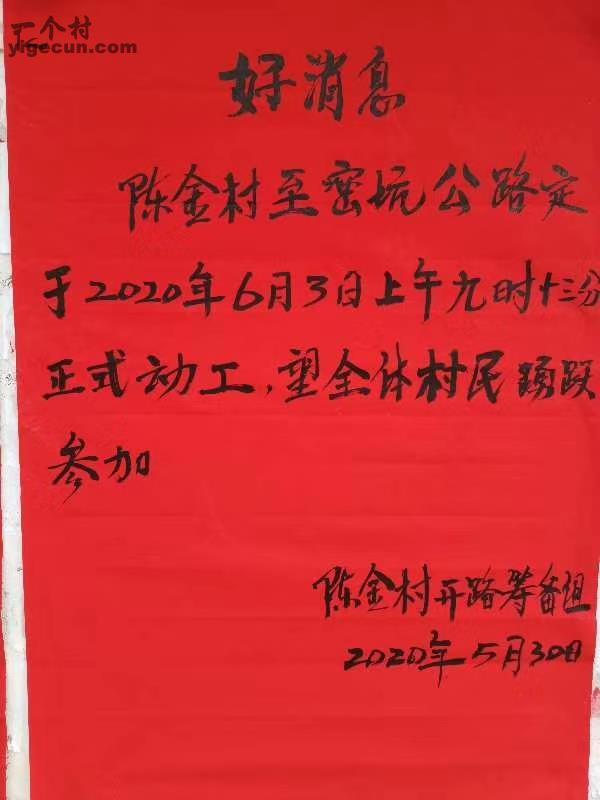 一个村
yigecun.com
好消息
陈金村至窑坑公路定
于2020年6月3日上午九时十三分
正式动工,望全体村民踊跃
参加
陈金村开路筹备组
2020年5月30日